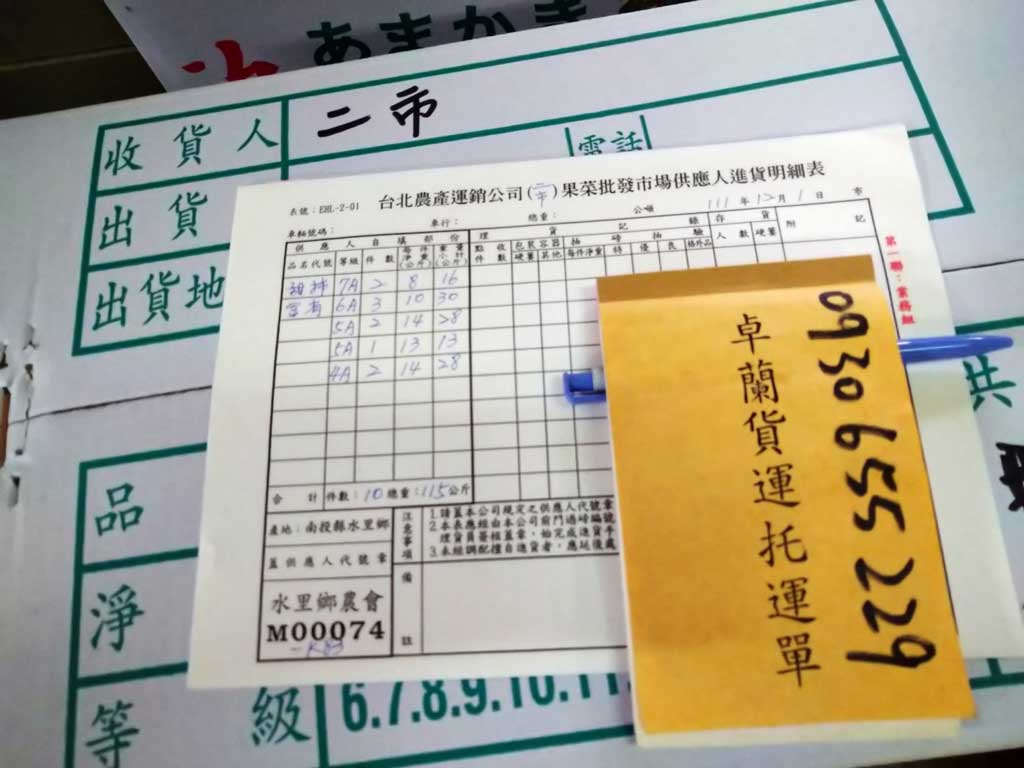 あまかき
收貨人
二市
電話
出貨
出貨地
表號：EHL-2-01
台北農產運銷公司(二市)果菜批發市場供應人進貨明細表
車輛號碼：
車行：
總重：
公噸
111年12月1日
市
供應人自填部份
理貨記錄
存貨
附記
品名代號 等級 件數 每件淨重(公斤) 重量小計(公斤)
點收件數 包裝容器 硬簍 其他 抽磅 每件淨重 抽驗 特 優 良 格外品 件數 硬簍
甜柿 7A 2 8 16
富有 6A 3 10 30
5A 2 14 28
5A 1 13 13
4A 2 14 28
合計 件數：10 總重：115公斤
第一聯：業務組
產地：南投縣水里鄉
蓋供應人代號章
水里鄉農會
M00074
注意事項
1.請蓋本公司規定之供應人代號章
2.本表應經由本公司前門過磅編號
理貨員簽核蓋章，始完成進貨手
3.未經調配擅自進貨者，應延後處
備註
0930655229
卓蘭貨運托運單
共
品
淨
等級
6.7.8.9.10.11